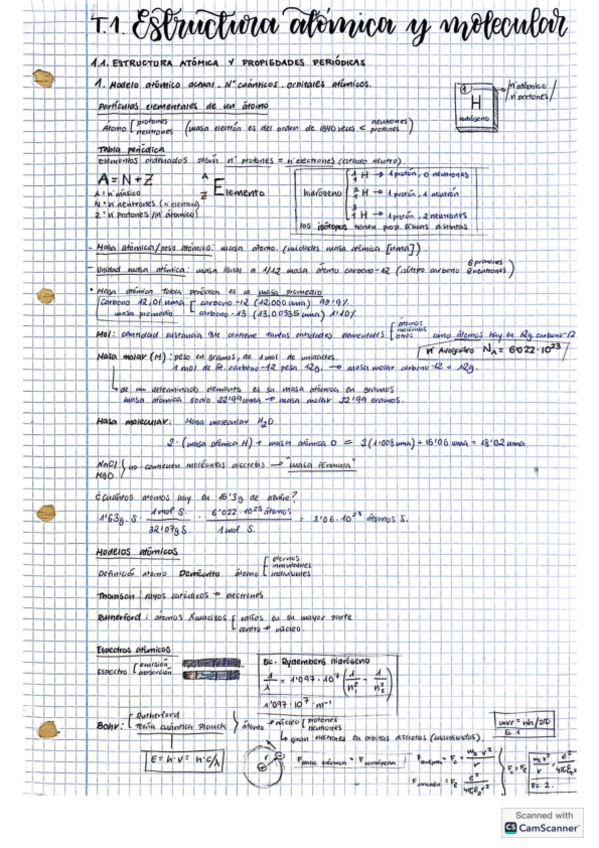 T.1. Estructura atómica y molecular
1.1. ESTRUCTURA ATÓMICA Y PROPIEDADES PERIÓDICAS
1. Modelo atómico actual. Nº cuánticos. orbitales atómicos.
1
H
hidrógeno
nº atómico
nº protones
Partículas elementales de un átomo
Átomo protones neutrones (masa electrón es del orden de 1840 veces < neutrones protones)
Tabla periódica
Elementos ordenados según nº protones = nº electrones (estado neutro)
A = N + Z
A Z Elemento
A = nº másico
N = nº neutrones
Z = nº protones (nº atómico)
hidrógeno
1 1 H → 1 protón, 0 neutrones
2 1 H → 1 protón, 1 neutrón
3 1 H → 1 protón, 2 neutrones
los isótopos tienen prop. físicas distintas
- Masa atómica/peso atómico: masa átomo. (unidades masa atómica [uma])
- Unidad masa atómica: masa igual a 1/12 masa átomo carbono-12 (isótopo carbono 6 protones 6 neutrones)
• Masa atómica tabla periódica es la masa promedio
Carbono 12,01 uma carbono-12 (12,000 uma) 98'9%
masa promedio carbono-13 (13,00335 uma) 1'10%
Mol: cantidad sustancia que contiene tantas entidades elementales átomos moléculas otros como átomos hay en 12g carbono-12
nº Avogadro NA = 6'022·10^23
Masa molar (M): peso en gramos, de 1 mol de unidades.
1 mol de carbono-12 pesa 12g. → masa molar carbono-12 = 12g.
de un determinado elemento es su masa atómica en gramos
masa atómica sodio 22'99 uma → masa molar 22'99 gramos.
Masa molecular: Masa molecular H2O
2·(masa atómica H) + masa atómica O = 2(1'008 uma) + 16'06 uma = 18'02 uma.
NaCl
MgO
no contienen moléculas discretas → "masa fórmula"
¿Cuántos átomos hay en 16'3g de azufre?
1'63g. S · 1 mol S. / 32'07g S. · 6'022·10^23 átomos / 1 mol S. = 3'06·10^23 átomos S.
Modelos atómicos
Definición átomo Demócrito átomo eternos inmutables indivisibles
Thomson: rayos catódicos → electrones
Rutherford: átomos vacíos en su mayor parte
centro → núcleo.
Espectros atómicos
Espectro emisión absorción
Ec. Rydemberg hidrógeno
1/λ = 1'097·10^7 (1/n² - 1/n²)
1'097·10^7 m^-1
Bohr: Rutherford
Teoría cuántica Planck
átomo → núcleo protones neutrones
giran electrones en órbitas discretas
E = h·ν = h·c/λ
mvr = nh/2π
Ec. 1
Ec. 2.
Scanned with
CS CamScanner